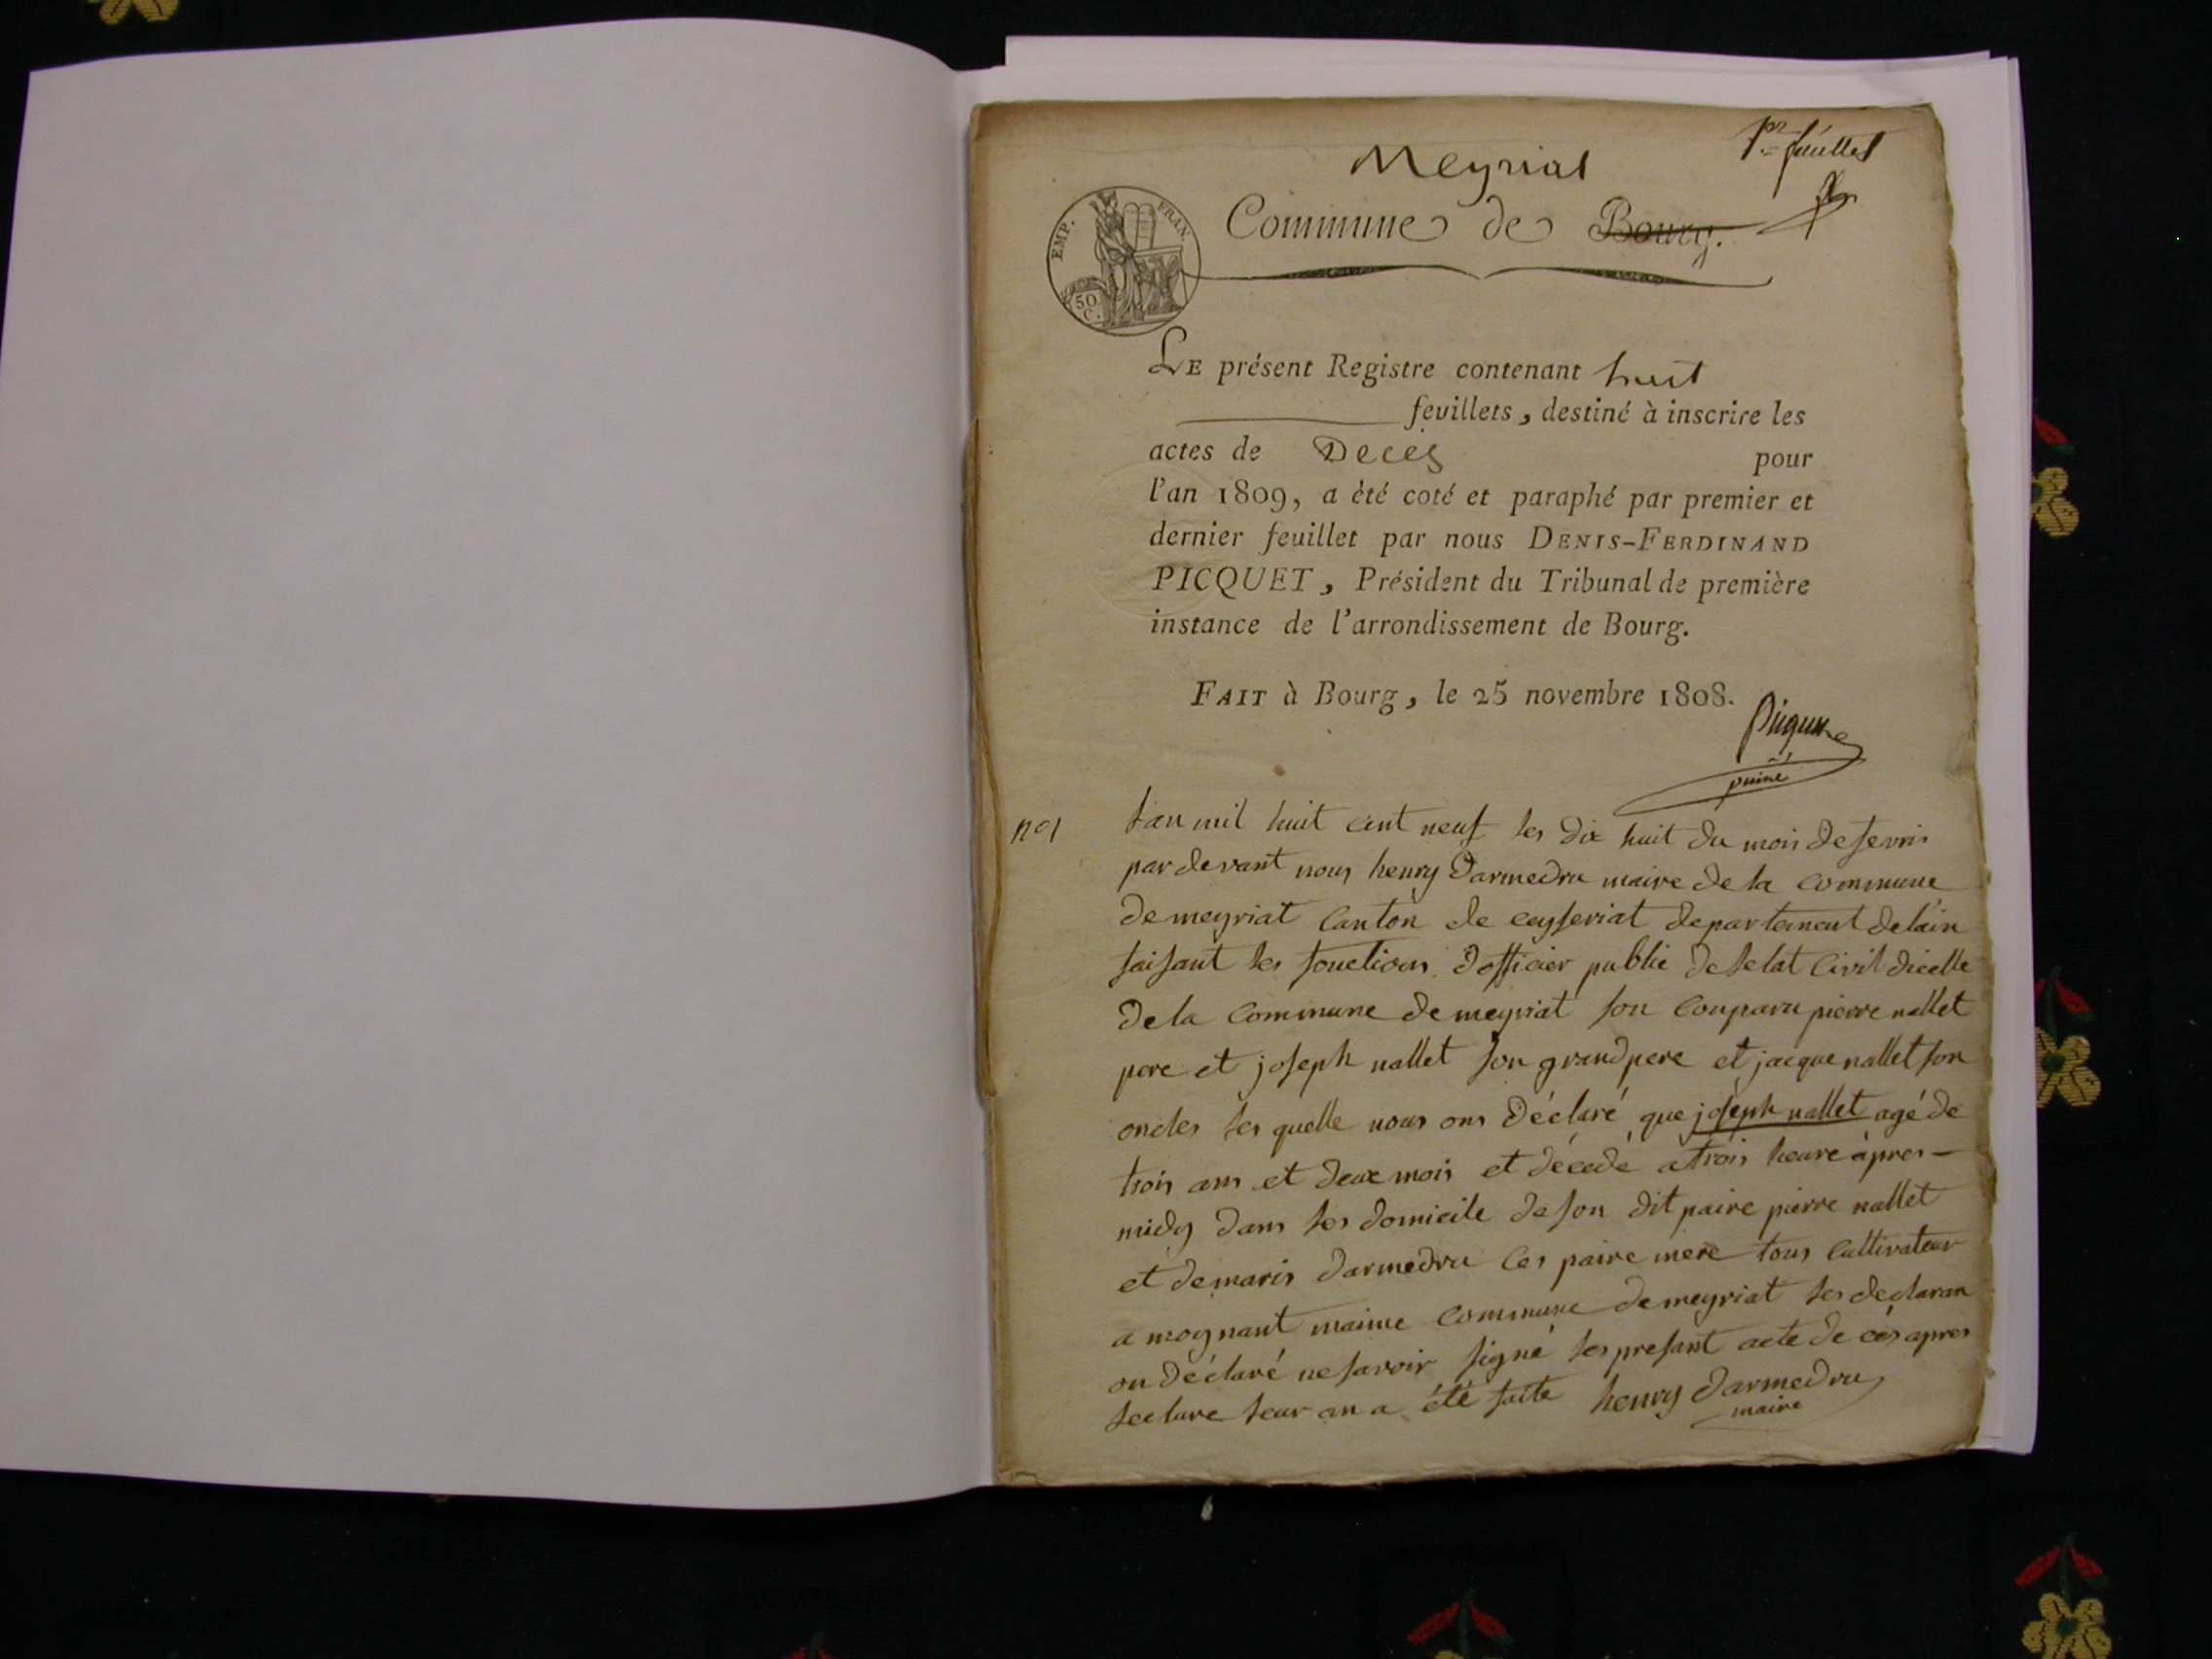 1er feuillet
Meyriat
Commune de Bourg.
EMP. FRAN.
50
C.
LE présent Registre contenant huit
feuillets, destiné à inscrire les
actes de Décés pour
l'an 1809, a èté coté et paraphé par premier et
dernier feuillet par nous DENIS-FERDINAND
PICQUET, Président du Tribunal de première
instance de l'arrondissement de Bourg.
FAIT à Bourg, le 25 novembre 1808.
Picquet
puiné
no 1
Lan mil huit cent neuf les dix huit du mois de fevris
par devant nous henry Darmedru maire de la commune
de meyriat Canton de ceyseriat departement de lain
faisant les fonctions dofficier public de letat Civil dicelle
de la Commune de meyriat son comparu pierre nallet
pere et joseph nallet son grand pere et jacque nallet son
oncles les quelle nous ons déclaré que joseph nallet agé de
trois ans et deux mois et décedé a trois heure àpres-
midy dans les domicile de son dit paire pierre nallet
et de maris darmedru ces paire mere tous Cultivateur
a moynant maime commune de meyriat les declaran
on déclaré ne savoir signé les presant acte de cés apres
lecture leur an a été faite henry Darmedru
maire